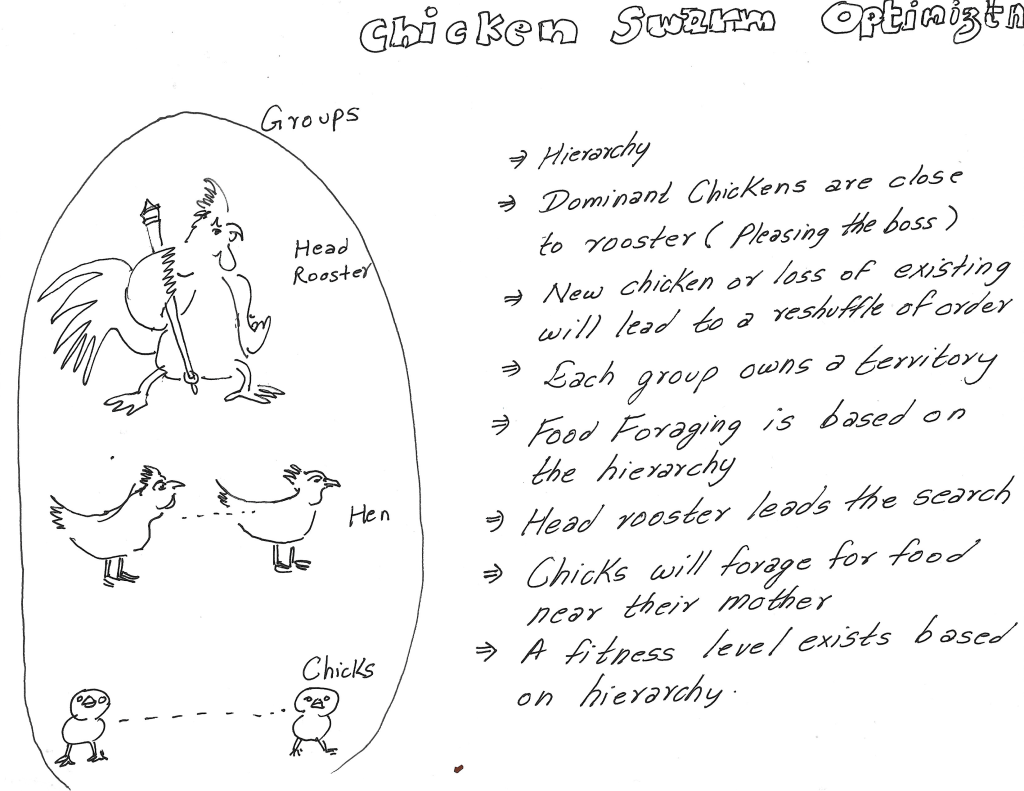 Chicken Swarm Optimiztn
Groups
Head
Rooster
Hen
Chicks
⇒ Hierarchy
⇒ Dominant Chickens are close
to rooster ( Pleasing the boss )
⇒ New chicken or loss of existing
will lead to a reshuffle of order
⇒ Each group owns a territory
⇒ Food Foraging is based on
the hierarchy
⇒ Head rooster leads the search
⇒ Chicks will forage for food
near their mother
⇒ A fitness level exists based
on hierarchy.